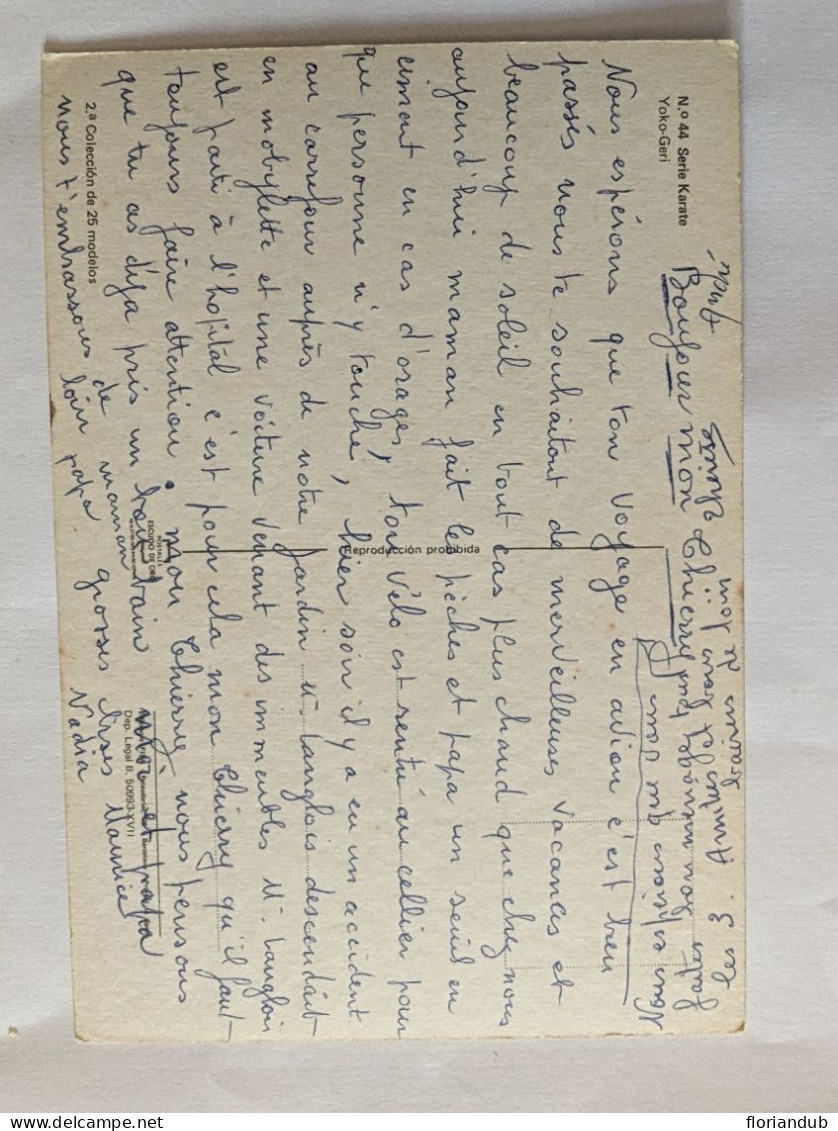 N.º 44 Serie Karate
Yoko-Geri
Bonjour mon Thierry
Nous espérons que ton voyage en avion c'est bien
passés nous te souhaitont de merveilleuses vacances et
beaucoup de soleil en tout cas plus chaud que chez nous
aujourd'hui maman fait les pêches et papa un seuil en
ciment en cas d'orages, ton vélo est rentré au cellier pour
que personne n'y touche, hier soir il y a eu un accident
au carrefour auprès de notre jardin Mr Langlois descendait
en mobylette et une voiture venant des immeubles Mr Langlois
est parti à l'hopital c'est pour cela mon Thierry qu'il faut
toujours faire attention. mon Thierry, nous pensons
que tu as déja pris un bon bain
nous t'embrassons
de maman
papa
grosses bises Maurice
Nadia
et papa
Reproducción prohibida
2.ª Colección de 25 modelos
POSTALES
ESCUDO DE ORO
Dep. Legal B. 50993-XVII
floriandub